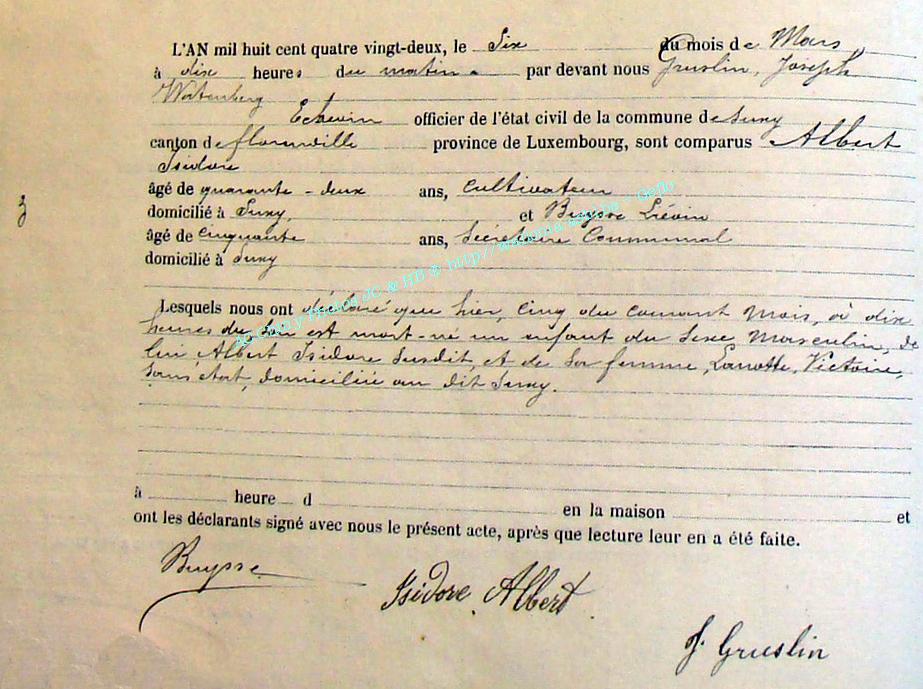 L'AN mil huit cent quatre vingt-deux, le Six du mois de Mars
à dix heures du matin par devant nous Gruslin, Joseph
Echevin officier de l'état civil de la commune de Suxy
canton de florenville province de Luxembourg, sont comparus Albert
Isidore
âgé de quarante-deux ans, Cultivateur
domicilié à Suxy, et Buysse Liévin
âgé de Cinquante ans, Secrétaire Communal
domicilié à Suxy
Lesquels nous ont déclaré que hier, Cinq du courant Mois, à dix
heures du Soir est mort-né un enfant du Sexe Masculin, de
lui Albert Isidore Susdit, et de Sa femme, Lanotte, Victoire,
Sans état, domiciliée au dit Suxy.
à heure d en la maison et
ont les déclarants signé avec nous le présent acte, après que lecture leur en a été faite.
Buysse
Isidore Albert
J. Gruslin